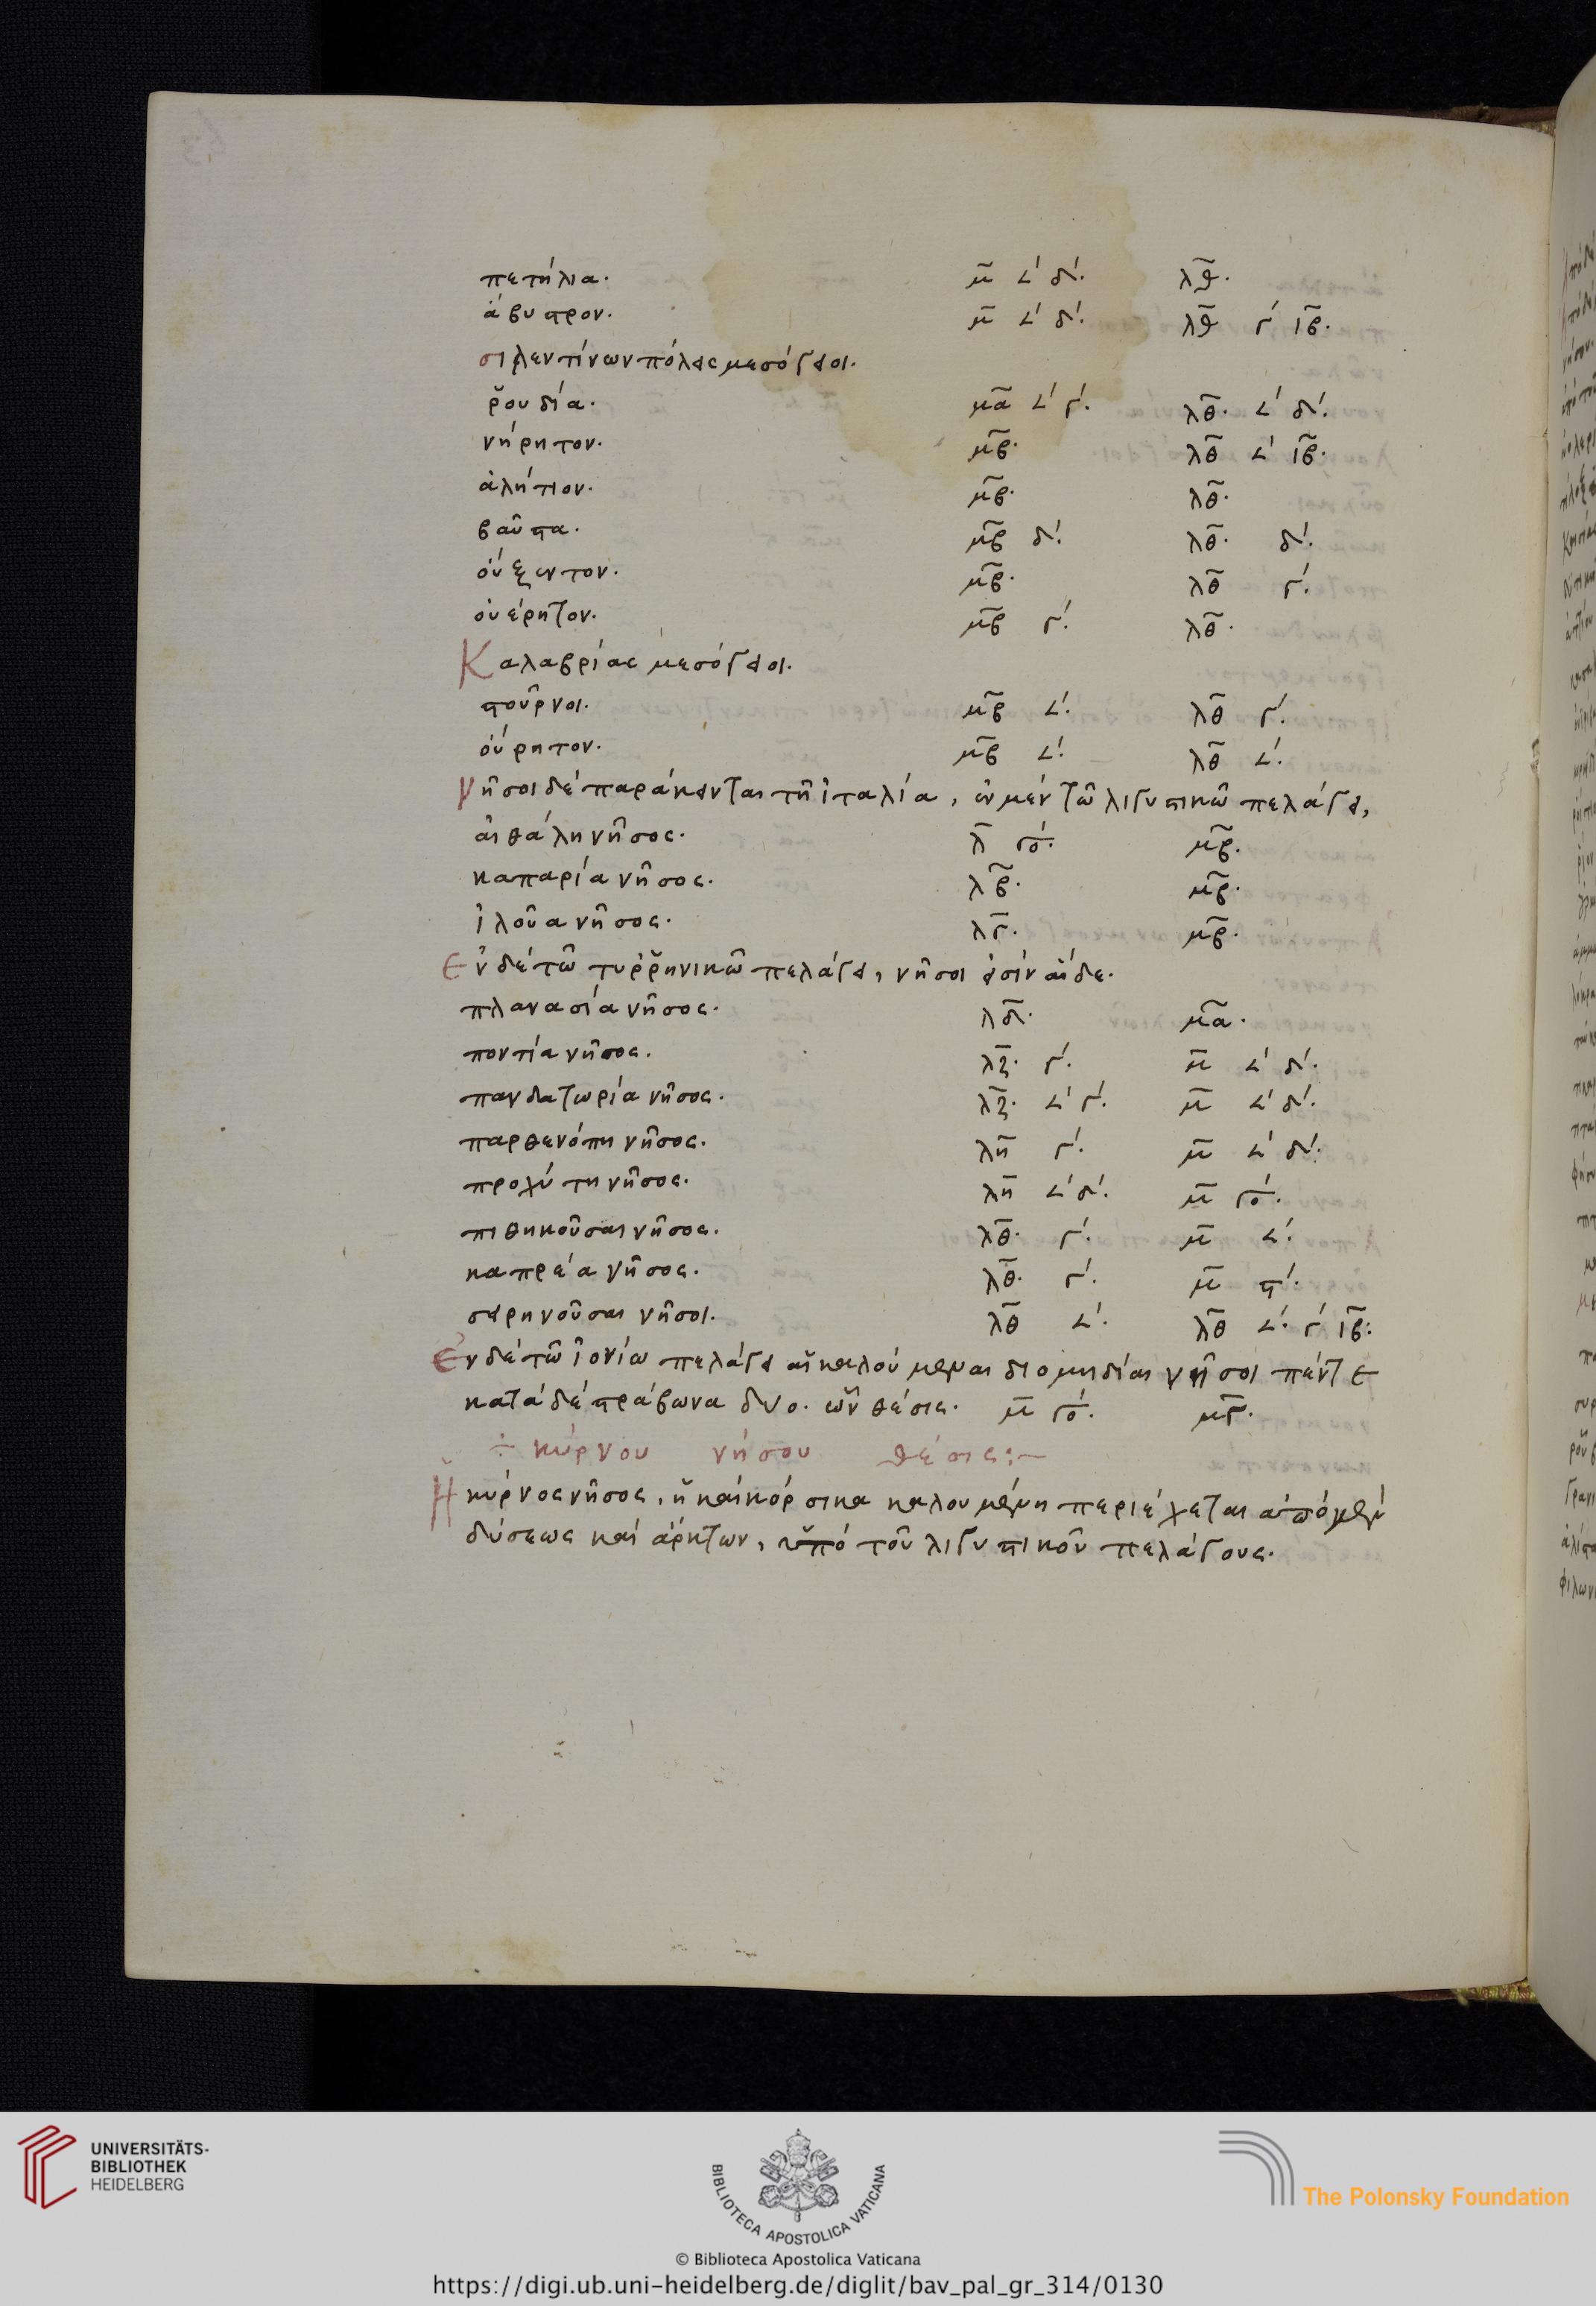 πετήλια. μ̅ 𐅵´ δ´. λθ̅.
ἄβυστρον. μ̅ 𐅵´ δ´. λθ̅ γ´ ιβ̅.
σιλεντίνων πόλεις μεσόγειοι.
ῥουδία. μα̅ 𐅵´ γ´. λθ̅. 𐅵´ δ´.
νήρητον. μβ̅. λθ̅ 𐅵´ ιβ̅.
ἀλήτιον. μβ̅. λθ̅.
βαῦστα. μβ̅ δ´. λθ̅. δ´.
οὔξεντον. μβ̅. λθ̅ γ´.
οὐέρητον. μβ̅ γ´. λθ̅.
Καλαβρίας μεσόγειοι.
στοῦρνοι. μβ̅ 𐅵´. λθ̅ γ´.
οὔρητον. μβ̅ 𐅵´. λθ̅ 𐅵´.
νῆσοι δέ παράκεινται τῆ ἰταλία, ἐν μέν τῶ λιγυστικῶ πελάγει,
αἰθάλη νῆσος. λ̅ γό. μβ̅.
καπαρία νῆσος. λβ̅. μβ̅.
ἰλοῦα νῆσος. λγ̅. μβ̅.
Ἐν δέ τῶ τυῤῥηνικῶ πελάγει, νῆσοι εἰσίν αἵδε.
πλανασία νῆσος. λδ̅. μα̅.
ποντία νῆσος. λζ̅. γ´. μ̅ 𐅵´ δ´.
πανδατωρία νῆσος. λζ̅. 𐅵´ γ´. μ̅ 𐅵´ δ´.
παρθενόπη νῆσος. λη̅ γ´. μ̅ 𐅵´ δ´.
προχύτη νῆσος. λη̅ 𐅵´ δ´. μ̅ γό.
πιθηκοῦσαι νῆσος. λθ̅. γ´. μ̅ 𐅵´.
καπρέα νῆσος. λθ̅. γ´. μ̅ ϛ´.
σειρηνοῦσαι νῆσοι. λθ̅ 𐅵´. λθ̅ 𐅵´. γ´ ιβ̅:
Ἐν δέ τῶ ἰονίω πελάγει αἱ καλούμεναι διομηδίαι νῆσοι πέντε
κατά δέ στράβωνα δυο. ὧν θέσις. μ̅ γό. μγ̅.
÷ κύρνου νήσου θέσις:~
Ἡ κύρνος νῆσος, ἥ καί κόρσικα καλουμένη περιέχεται ἀπό μέν
δύσεως καί ἄρκτων, ὑπό τοῦ λιγυστικοῦ πελάγους.
UNIVERSITÄTS-
BIBLIOTHEK
HEIDELBERG
BIBLIOTECA APOSTOLICA VATICANA
The Polonsky Foundation
© Biblioteca Apostolica Vaticana
https://digi.ub.uni-heidelberg.de/diglit/bav_pal_gr_314/0130